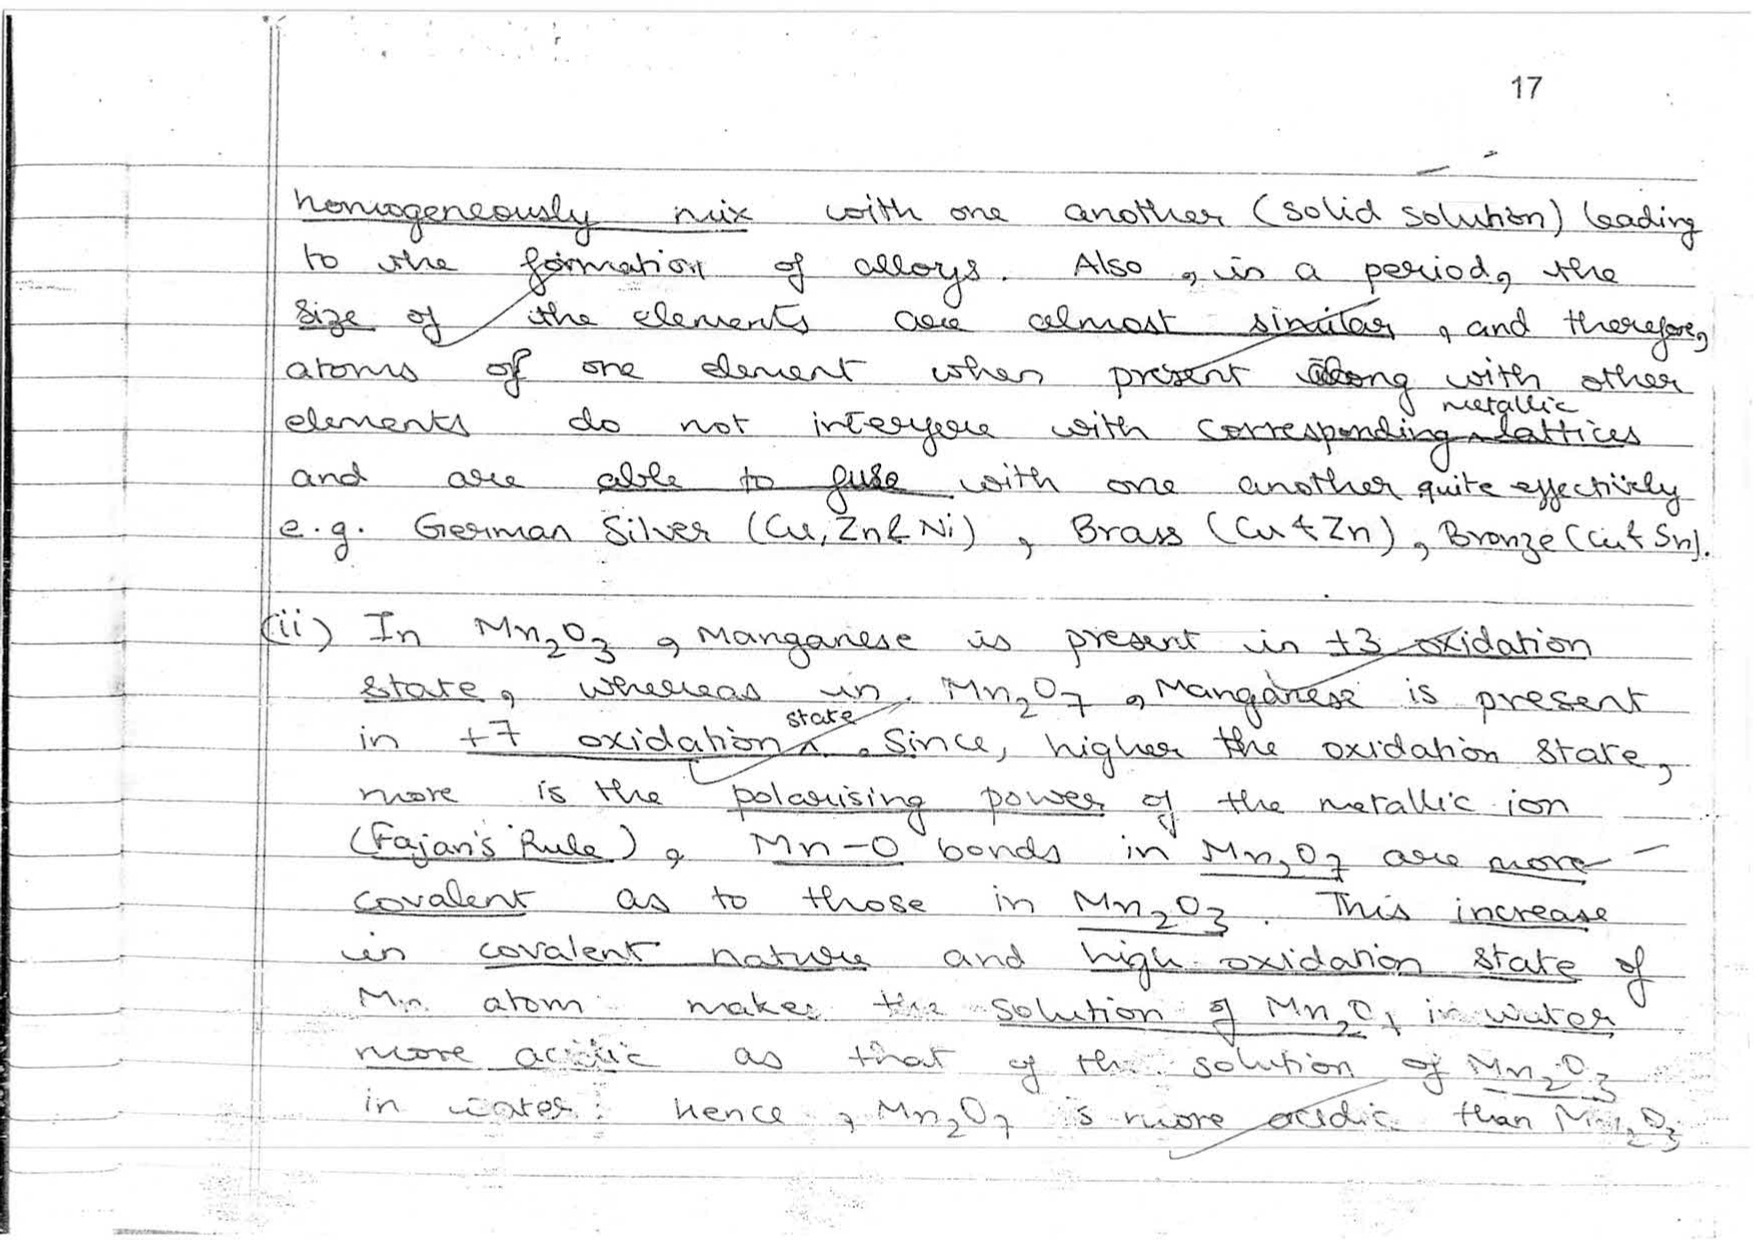 17
homogeneously mix with one another (solid solution) leading
to the formation of alloys. Also, in a period, the
size of the elements are almost similar, and therefore,
atoms of one element when present along with other
elements do not interfere with corresponding metallic lattices
and are able to fuse with one another quite effectively
e.g. German Silver (Cu, Zn & Ni), Brass (Cu & Zn), Bronze (Cu & Sn).
(ii) In Mn2O3, Manganese is present in +3 oxidation
state, whereas in Mn2O7, Manganese is present
in +7 oxidation state. Since, higher the oxidation state,
more is the polarising power of the metallic ion
(Fajan's Rule), Mn-O bonds in Mn2O7 are more
covalent as to those in Mn2O3. This increase
in covalent nature and high oxidation state of
Mn atom makes the solution of Mn2O7 in water
more acidic as that of the solution of Mn2O3
in water. Hence, Mn2O7 is more acidic than Mn2O3